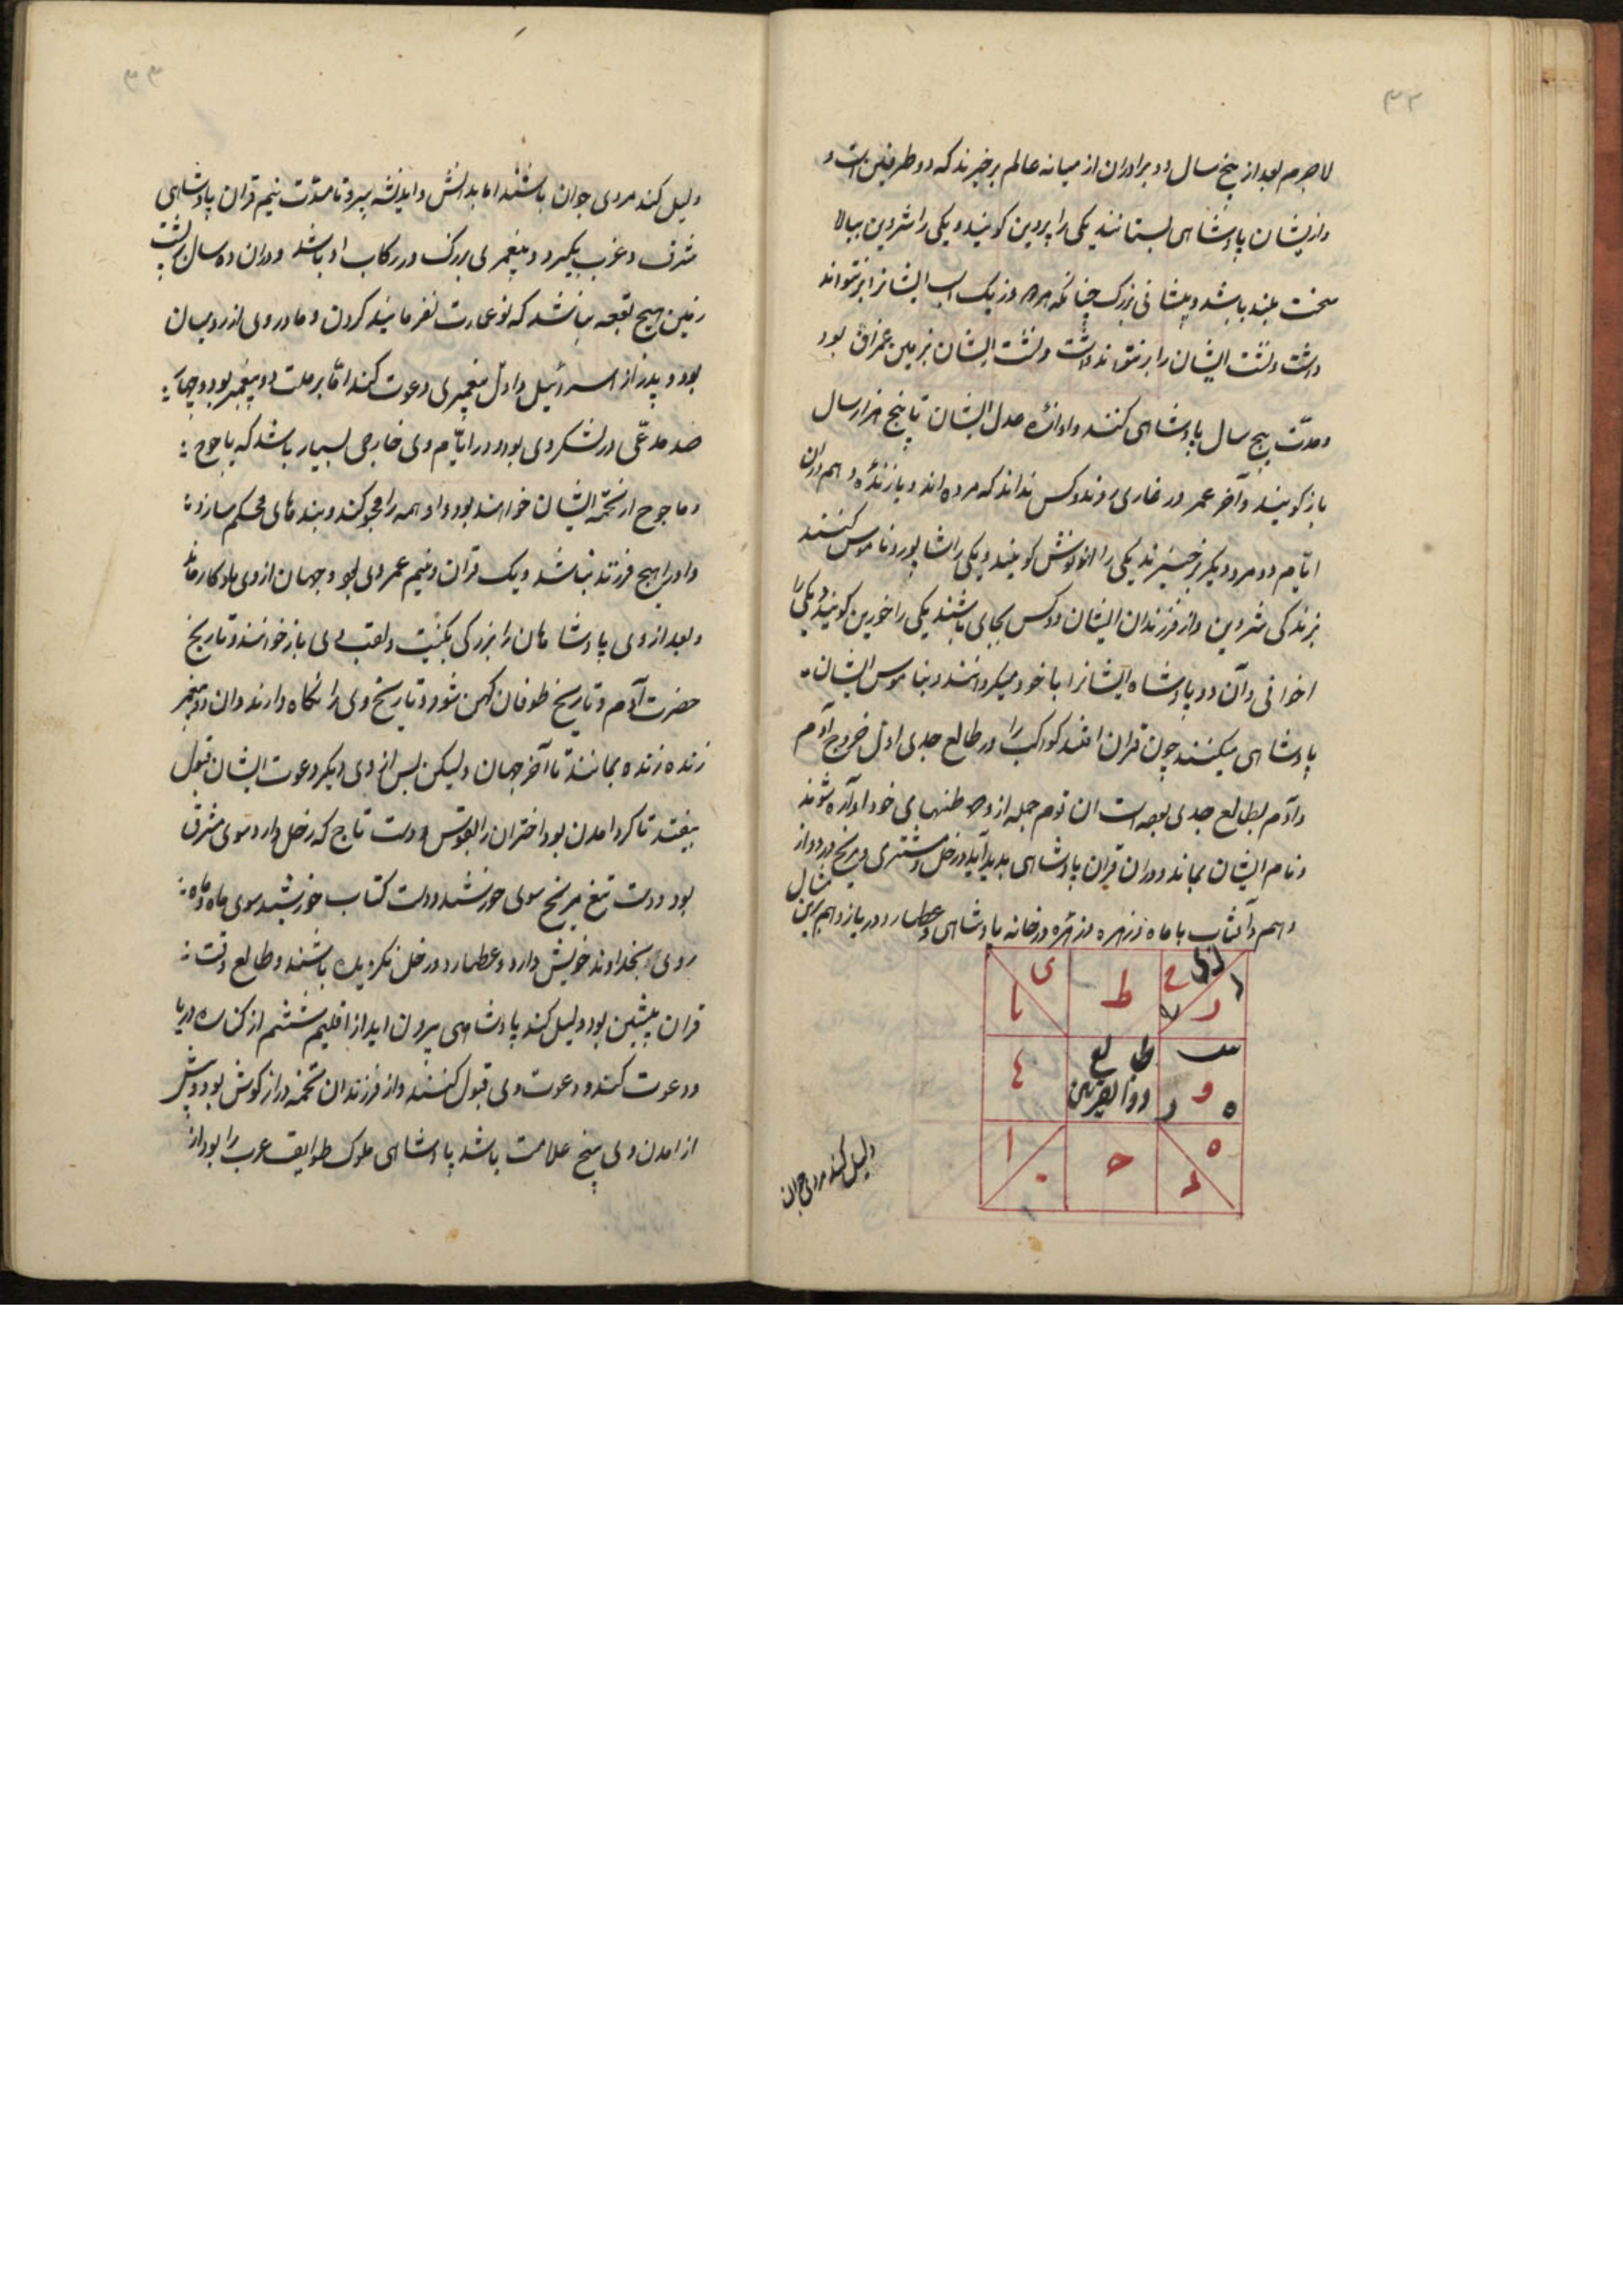 ۳۲
لاجرم بعد از پنج سال دو برادران از میانه عالم برخیزند که دو طرفین است و
و ازیشان پادشاهی بستانند یکی را پروین کویند و یکی را شروین ببالا
سخت بلند باشد و پیشانی بزرک چنانکه هر دو یک اسب ایشانرا برنتواند
داشت و نشت ایشان را برنتواند داشت و نشت ایشان بزمین عراق بود
و مدّت پنج سال پادشاهی کنند و اوازه عدل ایشان تا پنج هزار سال
باز کویند و آخر عمر در غاری روند و کس نداند که مرده اند و یا زنده و هم دران
ایّام دو مرد دیکر برخیزند یکی را انونش کویند و یکی را شاپور و ناموس کنند
بزندکی شروین و از فرزندان ایشان دو کس بجای باشند یکی را خورین کویند و یکی را
اخوانی و آن دو پادشاه ایشانرا با خود میکردانند و بناموس ایشان
پادشاهی میکنند چون قران افتد کواکب را در طالع جدی اول خروج آدم
و آدم بطالع جدی بوده است ان قوم جمله از وطنهای خود اواره شوند
و نام ایشان بماند و دران قران پادشاهی پدید آید و زحل و مشتری و مریخ در دواز
دهم و آفتاب با ماه و زهره در خانه پادشاهی و عطارد در یازدهم برین مثال
ی
یا
ط
ح
ر
طالع
ذوالقرنین
و
ه
د
ا
ح
ه
د
دلیل کند مردی جوان
۳۳
دلیل کند مردی جوان باشند اما بدانش و اندیشه پیر و تا مدّت نیم قران پادشاهی
شرق و غرب بکیرد و پیغمبری بزرک در رکاب او باشد و دران ده سال بر پشت
زمین هیچ بقعه نباشد که نو عمارت نفرمایند کردن و مادر وی از رومیان
بود و پدر از اسرائیل و اول پیغمبری دعوت کند امّا بر ملت دو پیغمبر بود و چهار
صد مدعّی در لشکر وی بود و در ایّام وی خارجی بسیار باشد که یاجوج
و ماجوج از تخمه ایشان خواهند بود و او همه را محو کند و بندهای محکم سازد
و او را هیچ فرزند نباشد و یک قران و نیم عمر وی بود و جهان ازوی یادکار ماند
و بعد از وی پادشاهان را بزرکی بکنیت و لقب وی باز خوانند و تاریخ
حضرت آدم و تاریخ طوفان کهن شود و تاریخ وی را نکاه دارند و ان دو پیغمبر
زنده زنده بمانند تا آخر جهان ولیکن پس از وی دیکر دعوت ایشان قبول
نیفتد تا کرد امدن بود اختران را بقوس و دست تاج که زحل دارد سوی مشرق
بود و دست تیغ مریخ سوی خورشید و دست کتاب خورشید سوی ماه و ماه
روی بخداوند خویش دارد و عطارد و زحل نزدیک باشند و طالع وقت
قران پیشین بود دلیل کند پادشاهی بیرون اید از اقلیم ششم از کناره دریا
و دعوت کند و دعوت وی قبول کنند و از فرزندان تخمه دراز کوش بود و پیش
از امدن وی پنج علامت باشد پادشاهی ملوک طوایف عرب را بود از